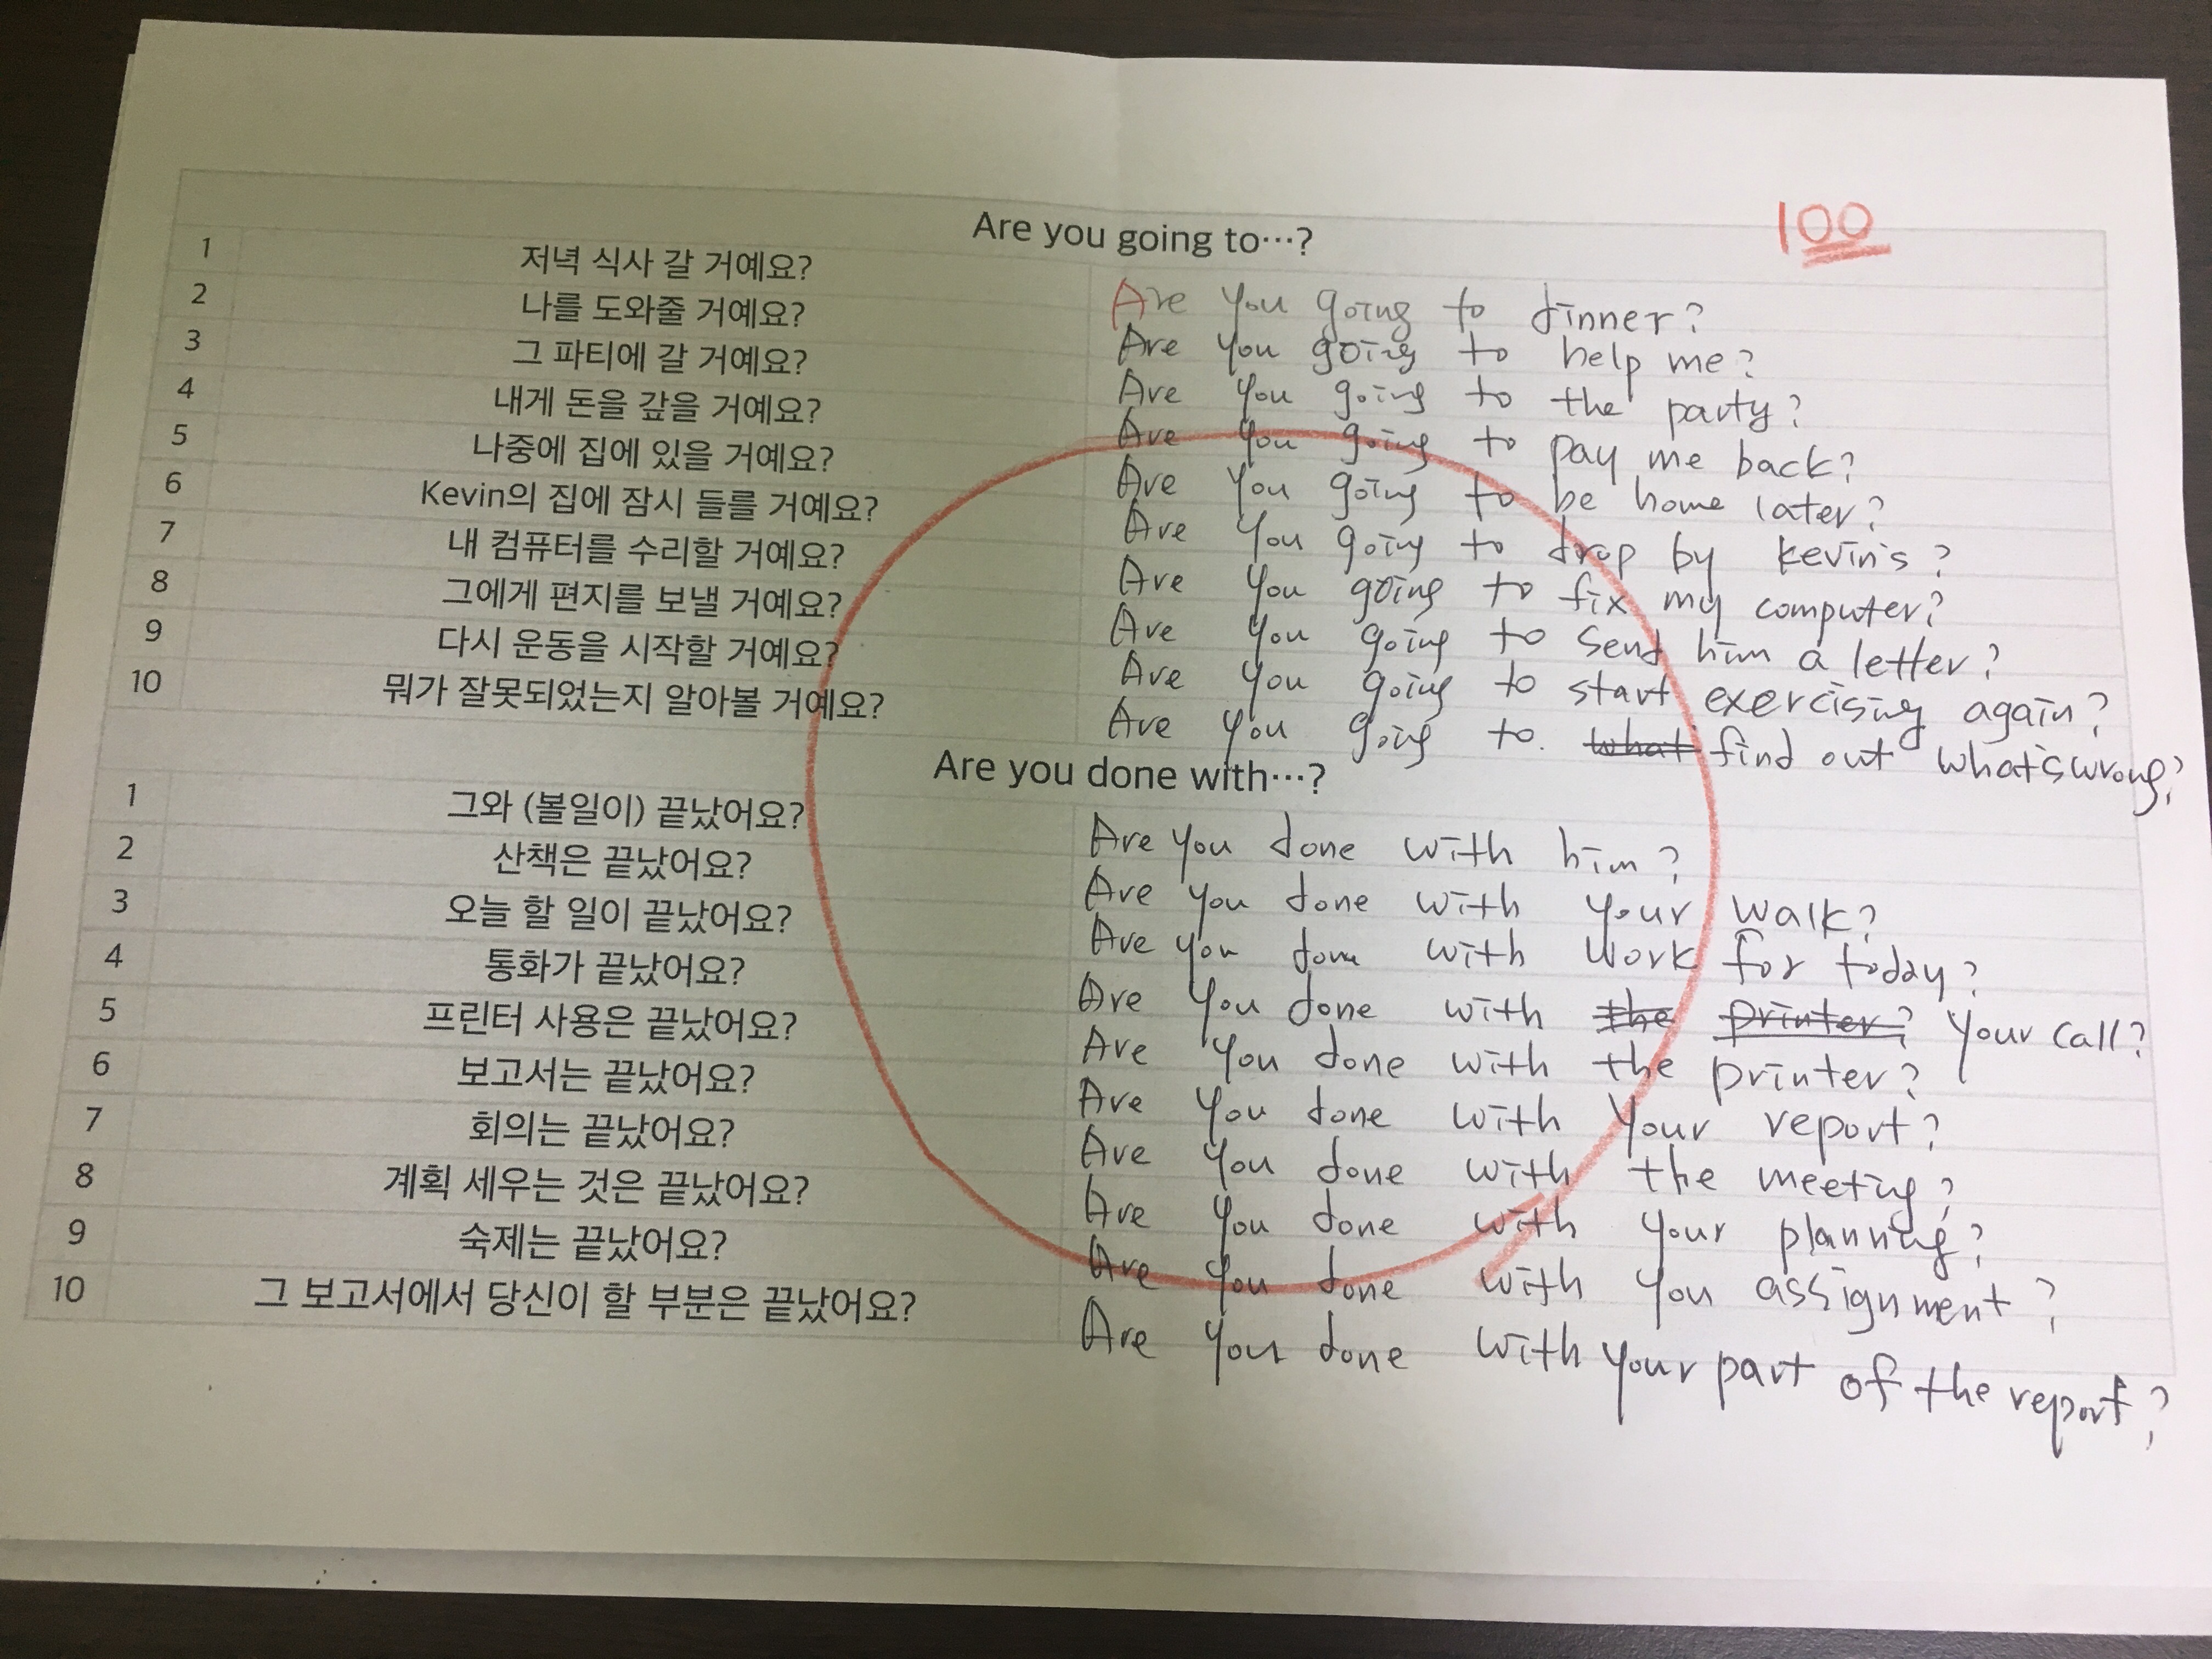 Are you going to…?
100
1 저녁 식사 갈 거예요? Are you going to dinner?
2 나를 도와줄 거예요? Are you going to help me?
3 그 파티에 갈 거예요? Are you going to the party?
4 내게 돈을 갚을 거예요? Are you going to pay me back?
5 나중에 집에 있을 거예요? Are you going to be home later?
6 Kevin의 집에 잠시 들를 거예요? Are you going to drop by kevin's?
7 내 컴퓨터를 수리할 거예요? Are you going to fix my computer?
8 그에게 편지를 보낼 거예요? Are you going to send him a letter?
9 다시 운동을 시작할 거예요? Are you going to start exercising again?
10 뭐가 잘못되었는지 알아볼 거예요? Are you going to. what find out what's wrong?
Are you done with…?
1 그와 (볼일이) 끝났어요? Are you done with him?
2 산책은 끝났어요? Are you done with your walk?
3 오늘 할 일이 끝났어요? Are you done with work for today?
4 통화가 끝났어요? Are you done with the printer? your call?
5 프린터 사용은 끝났어요? Are you done with the printer?
6 보고서는 끝났어요? Are you done with your report?
7 회의는 끝났어요? Are you done with the meeting?
8 계획 세우는 것은 끝났어요? Are you done with your planning?
9 숙제는 끝났어요? Are you done with you assignment?
10 그 보고서에서 당신이 할 부분은 끝났어요? Are you done with your part of the report?